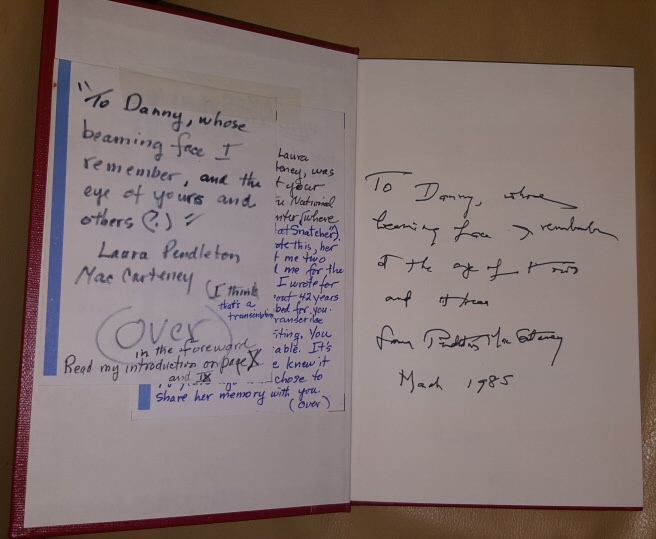 "To Danny, whose
beaming face I
remember, and the
eye of yours and
others (?.)"
Laura Pendleton
MacCarteney
(I think
that's a
transcription
Over
in the foreword
Read my introduction on page X
and IX
Laura
teney, was
t your
National
nter (where
at Snatcher").
ote this, her
t me two
d me for the
I wrote for
out 42 years
bed for you.
ranscribe
iting. You
able. It's
e knew it
chose to
share her memory with you.
(over)
To Danny, whose
beaming face I remember
at the age of two
and three
Laura Pendleton MacCarteney
March 1985